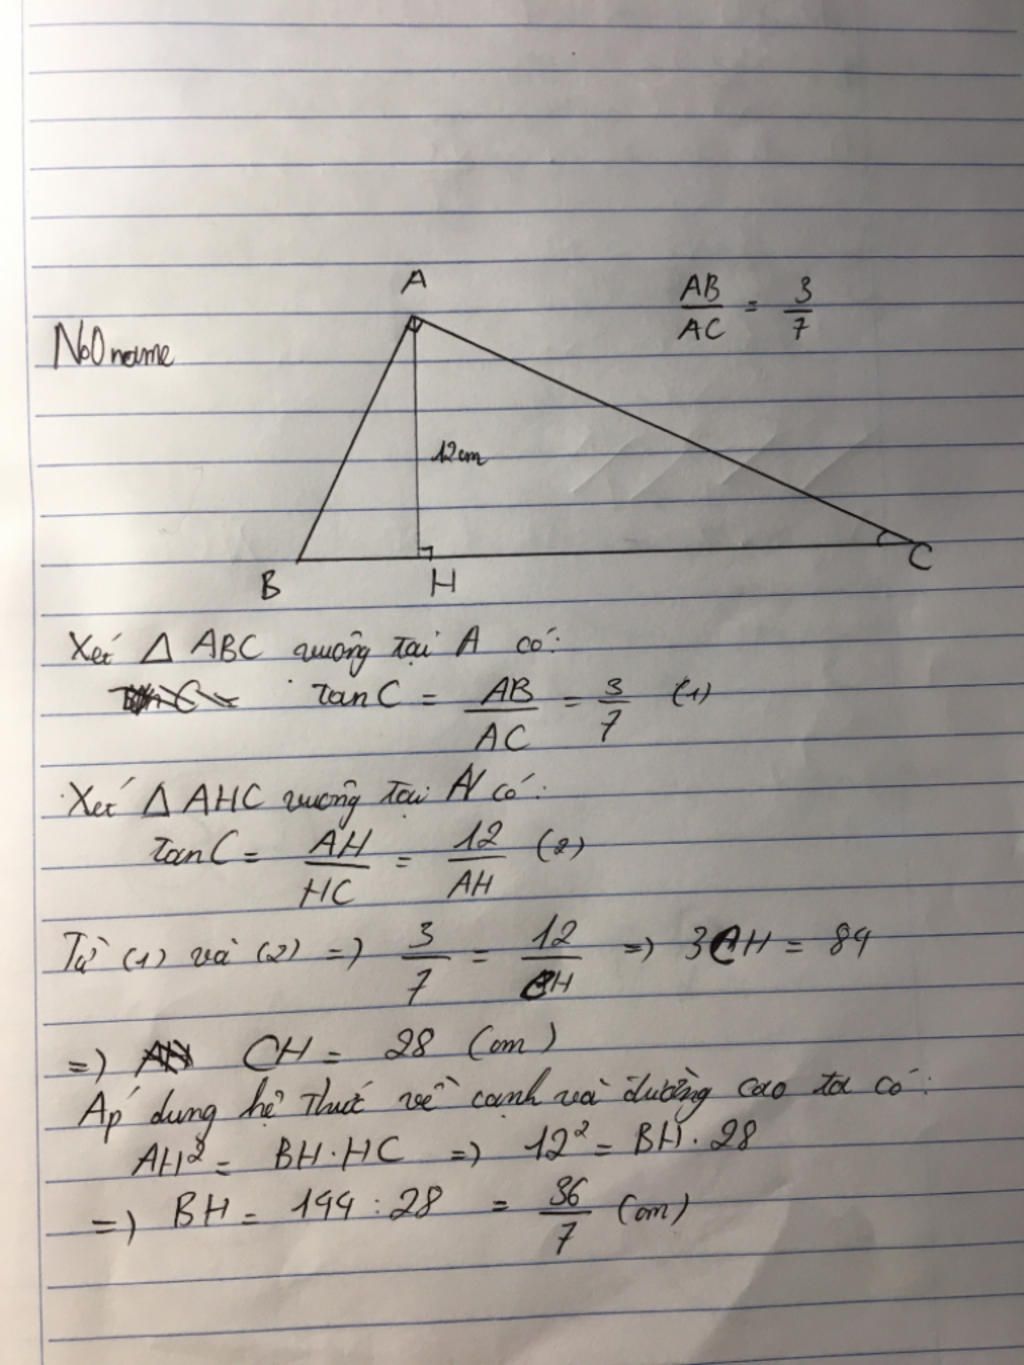 A
AB/AC = 3/7
NoOname
12cm
B H C
Xét Δ ABC vuông tại A có:
tanC = AB/AC = 3/7 (1)
Xét Δ AHC vuông tại H có:
tanC = AH/HC = 12/AH (2)
Từ (1) và (2) => 3/7 = 12/CH => 3CH = 84
=> CH = 28 (cm)
Áp dụng hệ thức về cạnh và đường cao ta có:
AH² = BH.HC => 12² = BH.28
=> BH = 144 : 28 = 36/7 (cm)